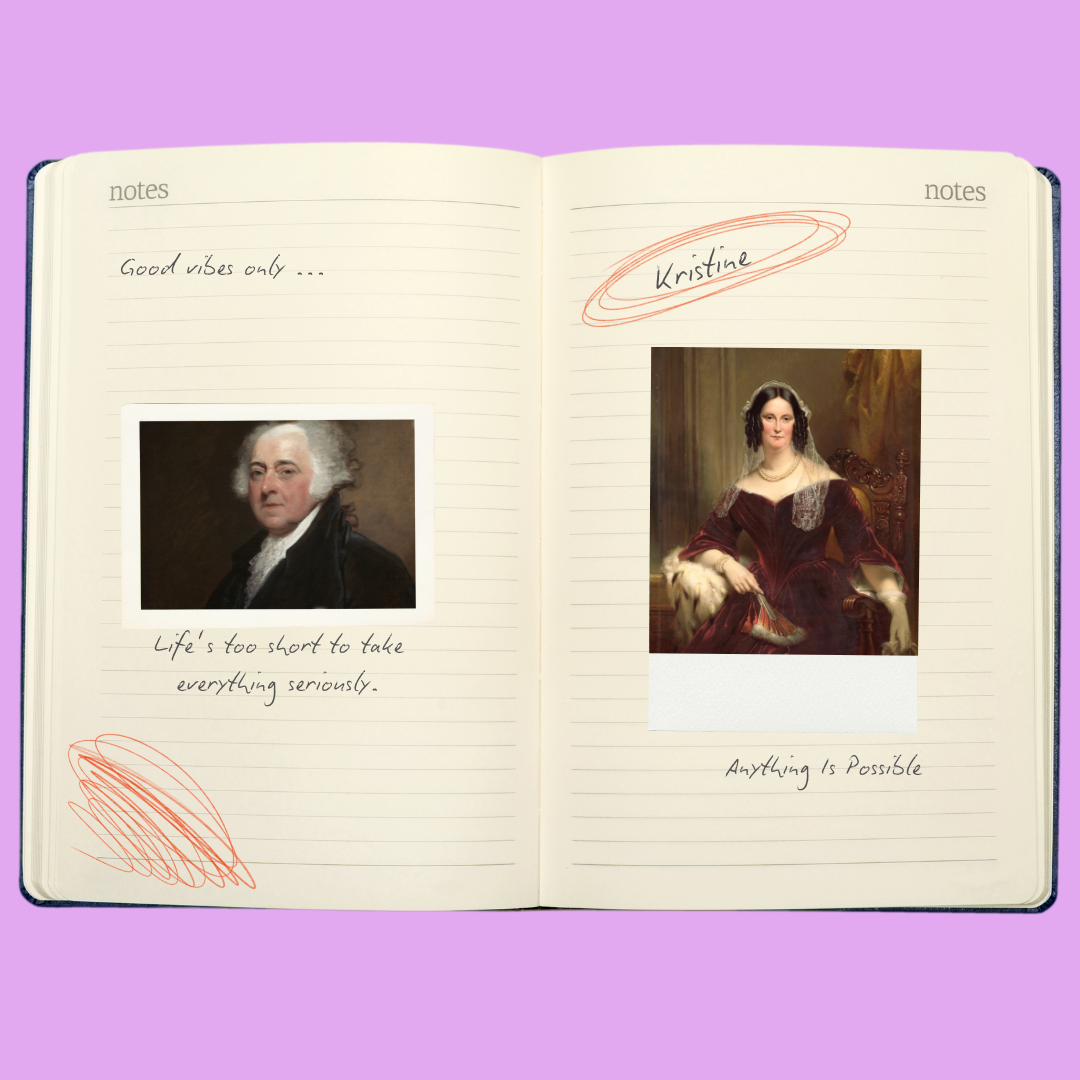 notes
Good vibes only ...
Life's too short to take
everything seriously.
notes
Kristine
Anything Is Possible